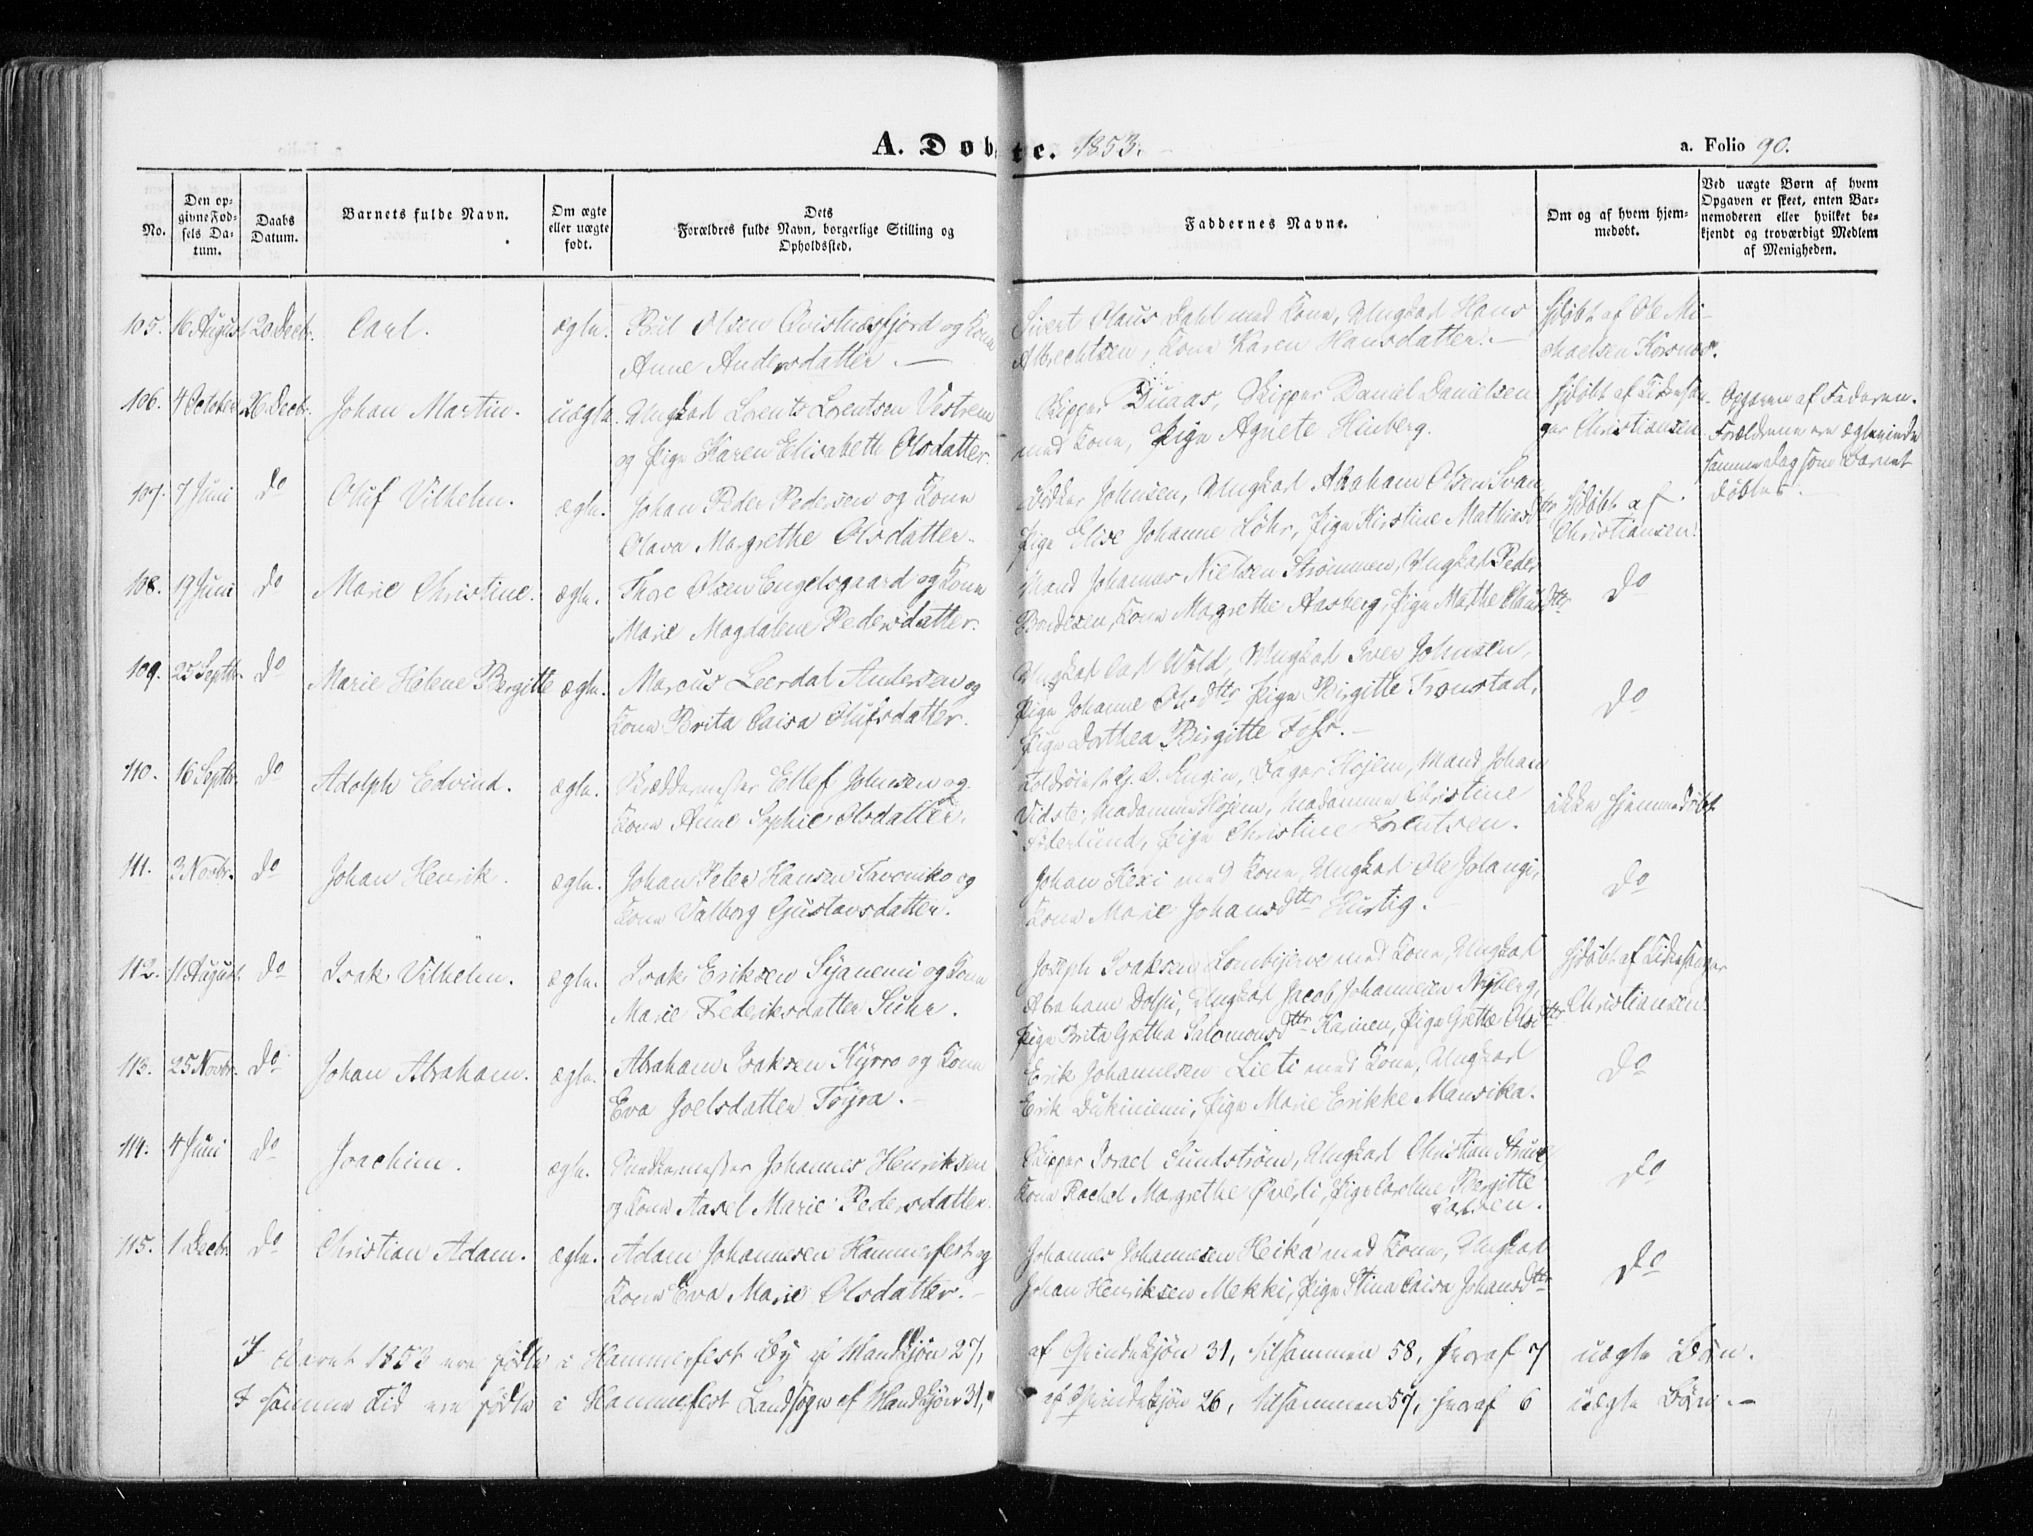 A. Døbte. 1853.
a. Folio 90.
No.
Den op-
givne Fød-
sels Da-
tum.
Daabs
Datum.
Barnets fulde Navn.
Om ægte
eller uægte
født.
Dets
Forældres fulde Navn, borgerlige Stilling og
Opholdssted.
Faddernes Navne.
Om og af hvem hjem-
medøbt.
Ved uægte Børn af hvem
Opgaven er skeet, enten Bar-
nemoderen eller hvilket be-
kjendt og troværdigt Medlem
af Menigheden.
105. 16 August 20 Decbr. Carl. ægte. Poul Olsen Qvistnæsfjord og Kone
Anne Andersdatter. —
Sivert Olaus Dahl med Kone, Ungkarl Hans
Albrechtsen, Kone Karen Hansdatter. —
hjdøbt af Ole Mi-
chaelsen Korsnæs.
106. 4 October 26 Decbr. Johan Martin. uægte. Ungkarl Lorents Lorentsen Vestrem
og Pige Karen Elisabeth Olsdatter.
Skipper Buaas, Skipper Daniel Danielsen
med Kone, Pige Agnete Hinberg.
hjdøbt af Kirkesan-
ger Christiansen
Opgaven af Faderen.
Forældrene ere ægteviede
samme dag som Barnet
døbtes. —
107. 7 Juni do Oluf Vilhelm. ægte. Johan Peder Pedersen og Kone
Olava Margrethe Olsdatter.
Bødker Johnsen, Ungkarl Abraham Olsen Svan,
Pige Elise Johanne Løhr, Pige Kirstine Mathiasdtr
hjdøbt af
Christiansen.
108. 19 Juni do Marie Christine. ægte. Thore Olsen Engelsgaard og Kone
Marie Magdalena Pedersdatter.
Mand Johannes Nielsen Strømmen, Ungkarl Peder
Bordesen, Kone Margrethe Aasberg, Pige Marthe Clausdtr
do
109. 25 Septbr. do Marie Helene Bergitte ægte. Marcus Leerdal Andersen og
Kone Brita Caisa Olufsdatter.
Ungkarl Carl Wold, Ungkarl Iver Johnsen,
Pige Johanne Olsdtr Pige Birgitte Tronstad,
Pige Dorthea Birgitte Foss. —
do
110. 16 Septbr. do Adolph Edvind. ægte. Skræddermester Ellef Johnsen og
Kone Anne Sophie Olsdatter.
Højem, Mand Johan
Vidste, Madamme Højem, Madamme Christine
Østerlund, Pige Christine Lorentsen.
ikke hjemmedøbt
111. 3 Novbr. do Johan Henrik. ægte. Johan Peter Hansen Savoniko og
Kone Valborg Gustavsdatter.
Johan Kexi med Kone, Ungkarl Ole Jolangi,
Kone Marie Johansdtr Hurtig. —
do
112. 11 August. do Isak Vilhelm. ægte. Isak Eriksen Sijanemi og Kone
Marie Frederiksdatter Suhr.
Joseph Isaksen Lombijerve med Kone, Ungkarl
Abraham Dolpi, Ungkarl Jacob Johannesen Nyberg,
Pige Brita Gretha Salomonsdtr Kainen, Pige Grethe Olsdtr
hjdøbt af Kirkesanger
Christiansen.
113. 25 Novbr. do Johan Abraham. ægte. Abraham Isaksen Kyrro og Kone
Eva Joelsdatter Töyra. —
Erik Johannesen Lieti med Kone, Ungkarl
Erik Lukiniemi, Pige Marie Erikke Mansika.
do
114. 4 Juni do Joachim. ægte. Snedkermester Johannes Henriksen
og Kone Aasel Marie Pedersdatter.
Skipper Israel Sundstrøm, Ungkarl Christian Struve
Kone Rachel Margrethe Øverli, Pige Caroline Bergitte
Carlsen.
do
115. 1 Decbr do Christian Adam. ægte. Adam Johannesen Hammerfest og
Kone Eva Marie Olsdatter. —
Johannes Johannesen Heika med Kone, Ungkarl
Johan Henriksen Mekki, Pige Stina Caisa Johansdtr
do
I Aaret 1853 ere fødte i Hammerfest By af Mandkjøn 27, af Qvindekjøn 31, tilsammen 58, heraf 7 uægte Børn.
I samme Tid ere fødte i Hammerfest Landsogn af Mandkjøn 31, af Qvindekjøn 26, tilsammen 57, heraf 6 uægte Børn. —